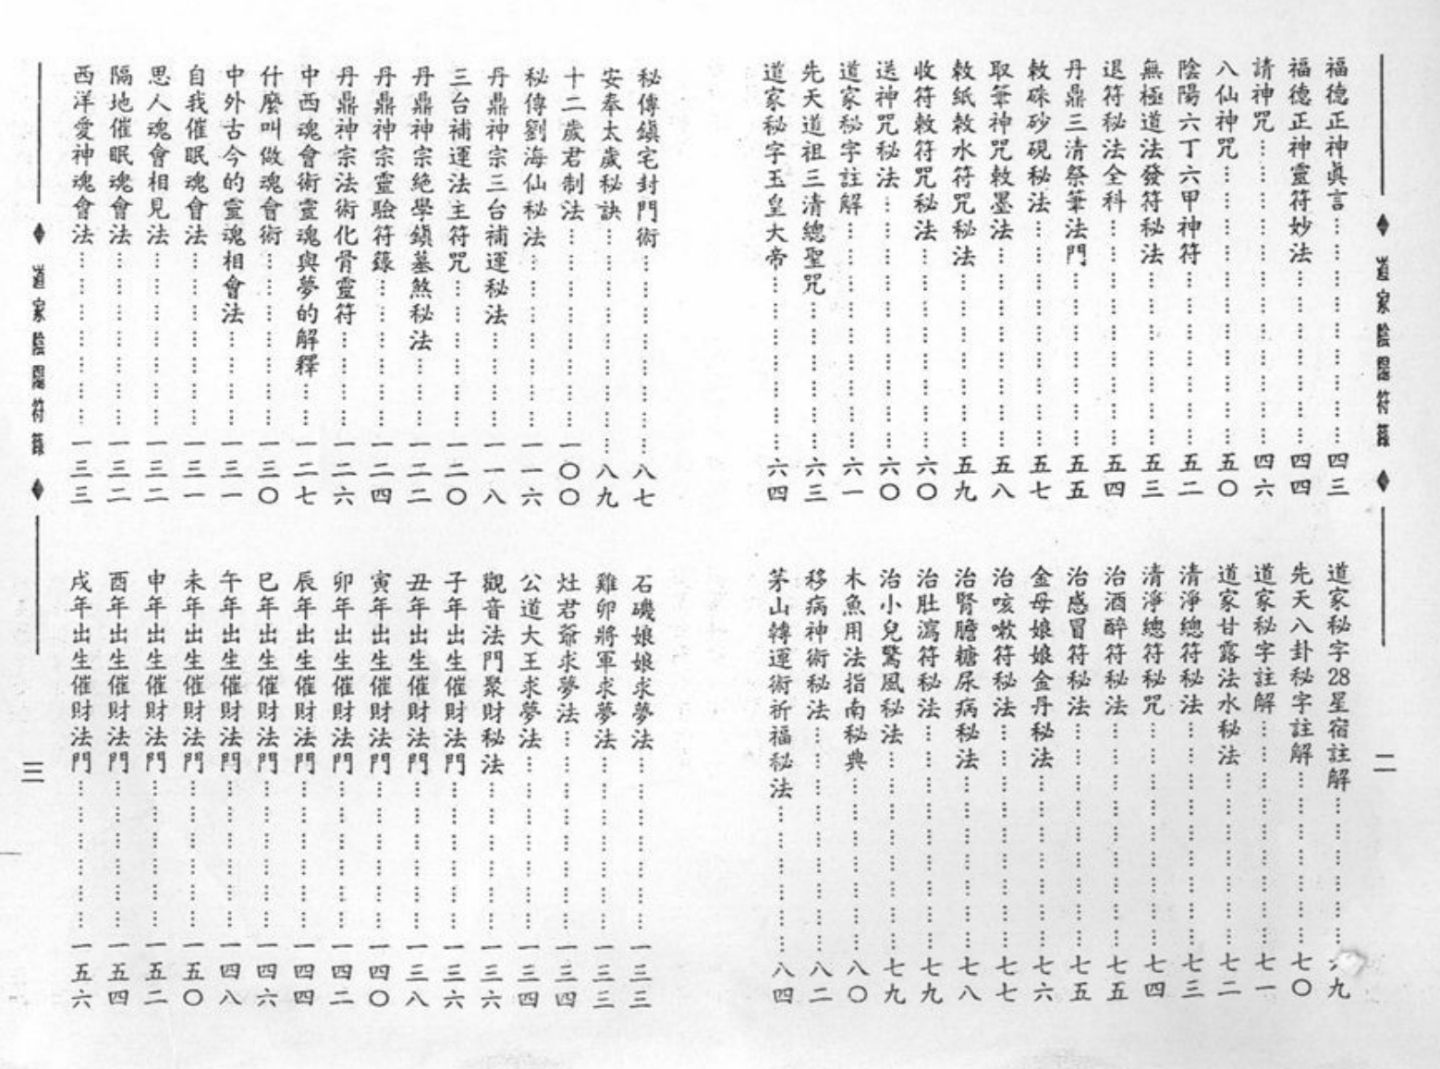 道家陰陽符籙
二
福德正神真言……四三
福德正神靈符妙法……四四
請神咒……四六
八仙神咒……五〇
陰陽六丁六甲神符……五二
無極道法發符秘法……五三
退符秘法全科……五四
丹鼎三清祭筆法門……五五
敕硃砂硯秘法……五七
取筆神咒敕墨法……五八
敕紙敕水符咒秘法……五九
收符敕符咒秘法……六〇
送神咒秘法……六〇
道家秘字註解……六一
先天道祖三清總聖咒……六三
道家秘字玉皇大帝……六四
道家秘字28星宿註解……九
先天八卦秘字註解……七〇
道家秘字註解……七一
道家甘露法水秘法……七二
清淨總符秘法……七三
清淨總符秘咒……七四
治酒醉符秘法……七五
治感冒符秘法……七五
金母娘娘金丹秘法……七六
治咳嗽符秘法……七七
治腎膽糖尿病秘法……七八
治肚瀉符秘法……七九
治小兒驚風秘法……七九
木魚用法指南秘典……八〇
移病神術秘法……八二
茅山轉運術祈福秘法……八四
秘傳鎮宅封門術……八七
安奉太歲秘訣……八九
十二歲君制法……一〇〇
秘傳劉海仙秘法……一一六
丹鼎神宗三台補運秘法……一一八
三台補運法主符咒……一二〇
丹鼎神宗絕學鎮墓煞秘法……一二二
丹鼎神宗靈驗符籙……一二四
丹鼎神宗法術化骨靈符……一二六
中西魂會術靈魂與夢的解釋……一二七
什麼叫做魂會術……一三〇
中外古今的靈魂相會法……一三一
自我催眠魂會法……一三一
思人魂會相見法……一三二
隔地催眠魂會法……一三二
西洋愛神魂會法……一三三
石磯娘娘求夢法……一三三
雞卵將軍求夢法……一三三
灶君爺求夢法……一三四
公道大王求夢法……一三四
觀音法門聚財秘法……一三六
子年出生催財法門……一三六
丑年出生催財法門……一三八
寅年出生催財法門……一四〇
卯年出生催財法門……一四二
辰年出生催財法門……一四四
巳年出生催財法門……一四六
午年出生催財法門……一四八
未年出生催財法門……一五〇
申年出生催財法門……一五二
酉年出生催財法門……一五四
戌年出生催財法門……一五六
道家陰陽符籙
三